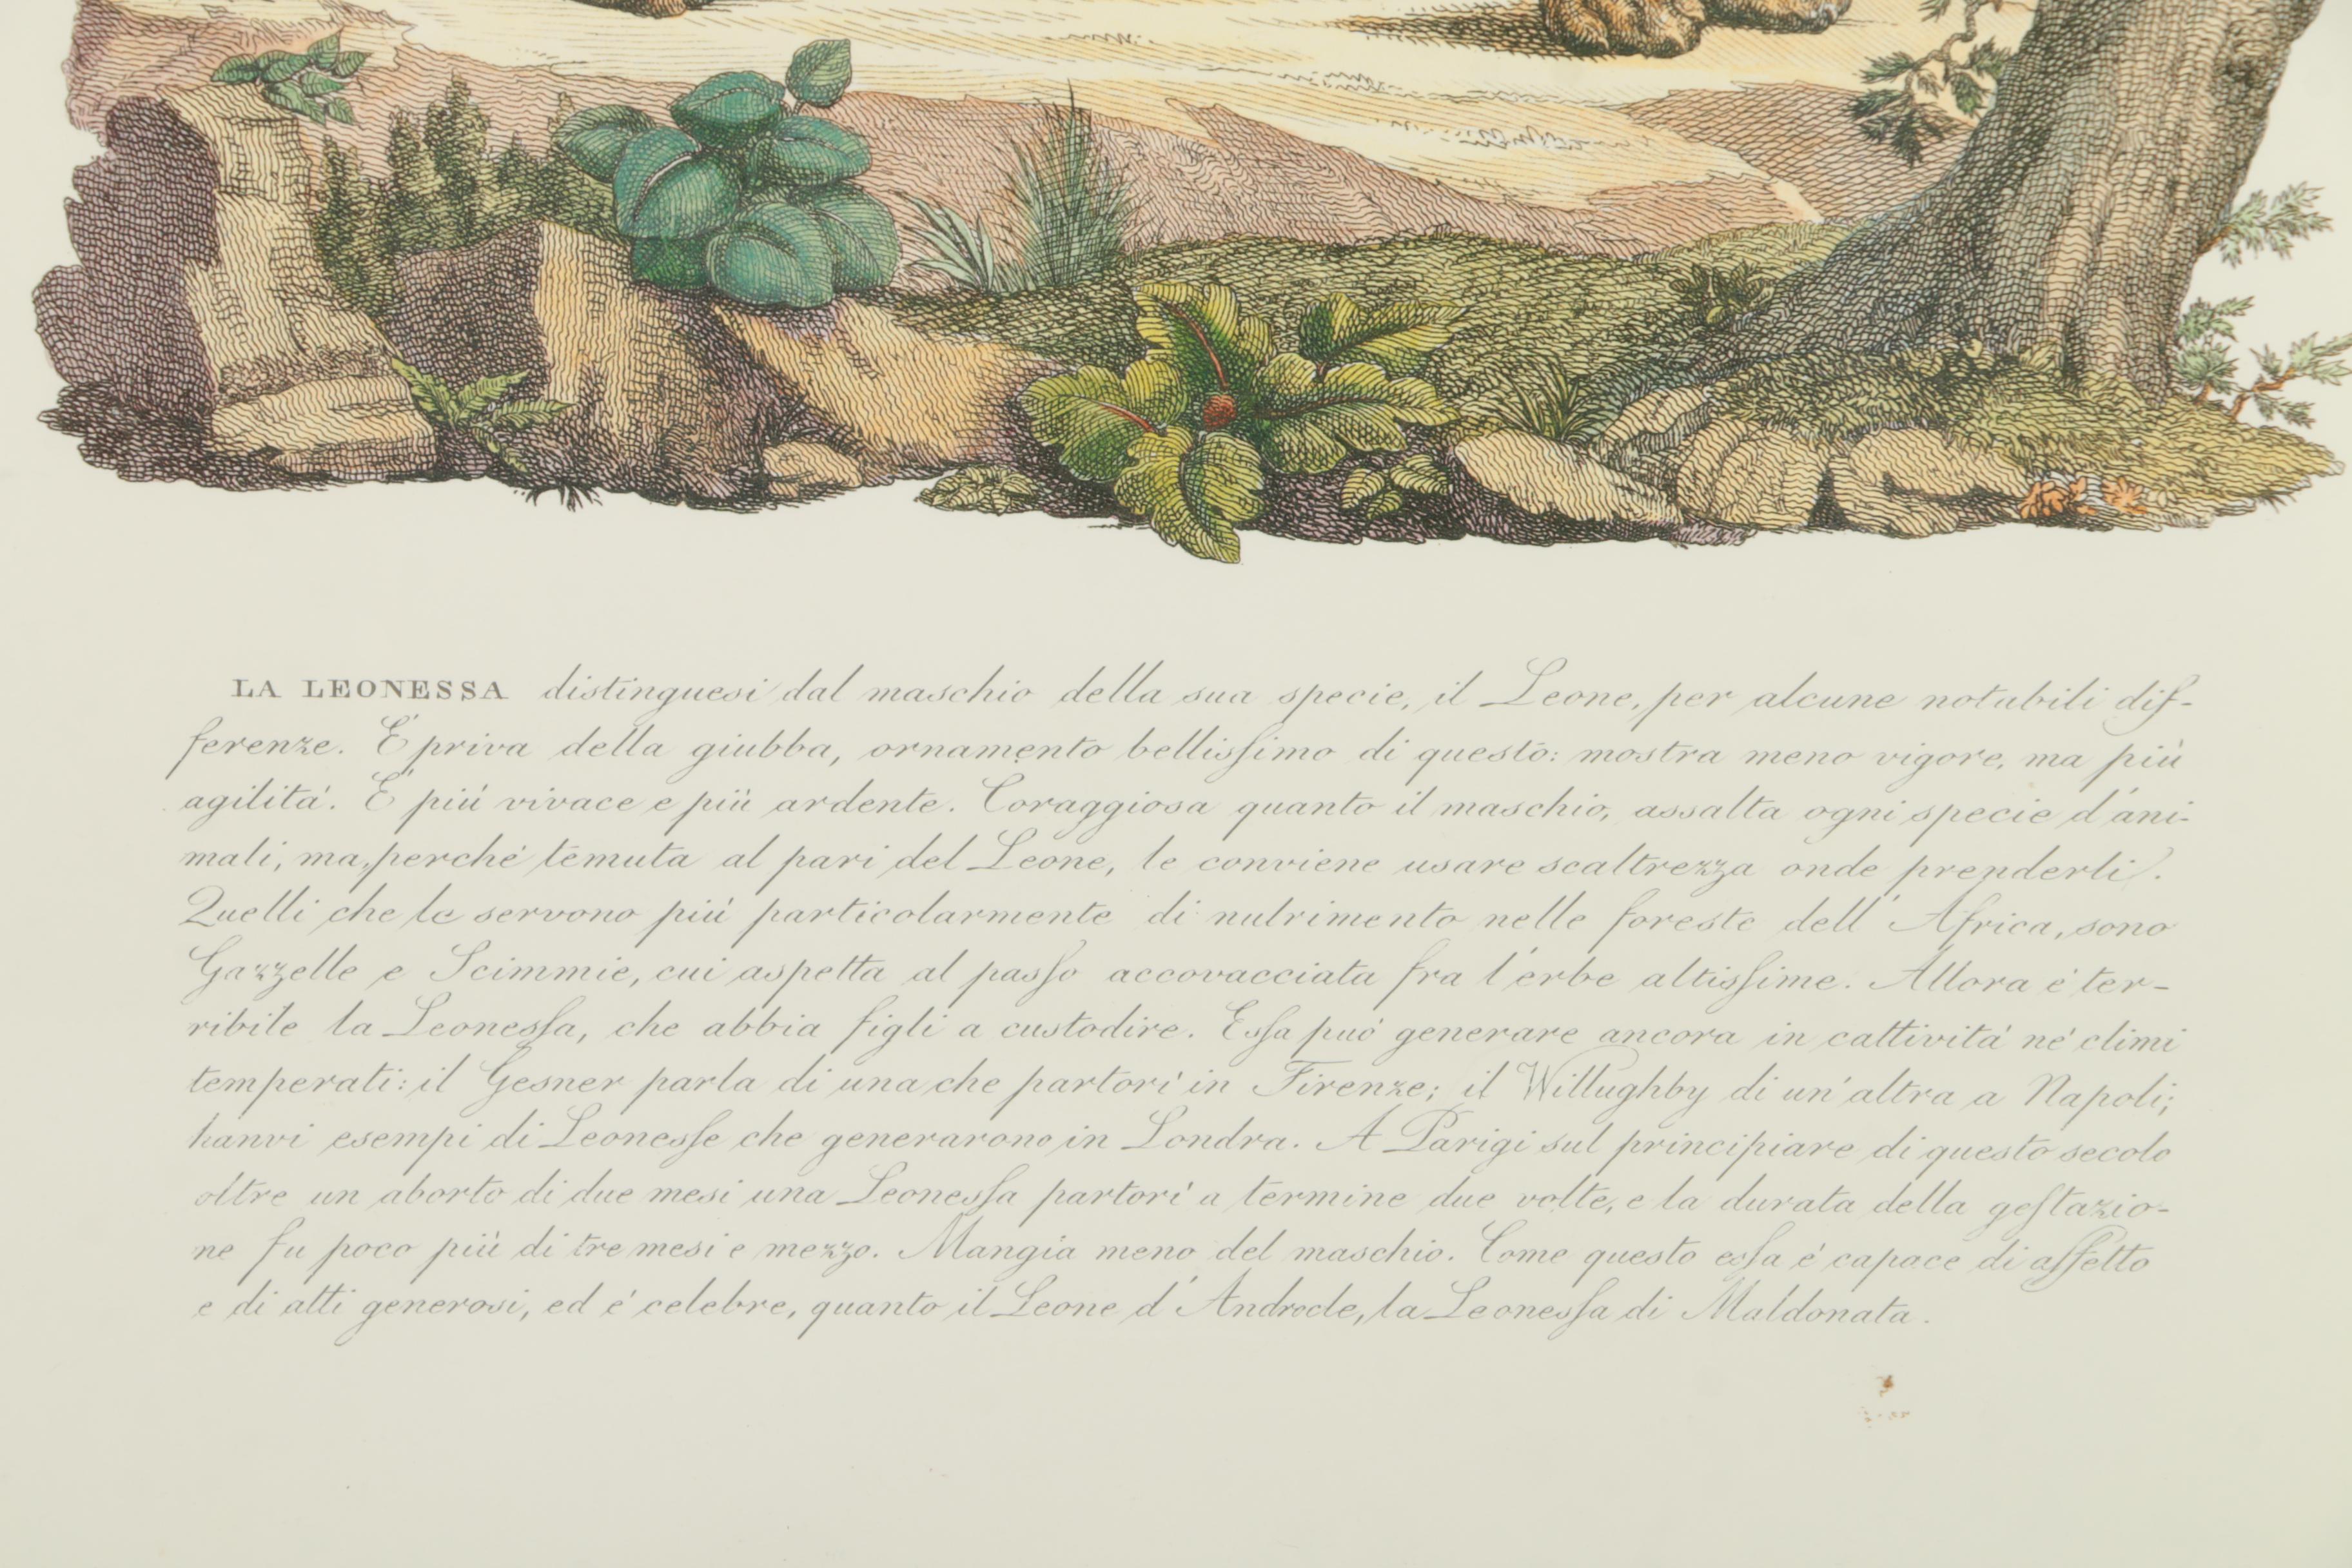 LA LEONESSA distinguesi dal maschio della sua specie, il Leone, per alcune notabili dif-
ferenze. É priva della giubba, ornamento belliſsimo di questo: mostra meno vigore, ma più
agilitá. É piú vivace e piú ardente. Coraggiosa quanto il maschio, assalta ogni specie d'ani-
mali, ma, perché temuta al pari del Leone, le conviene usare scaltrezza onde prenderli.
Quelli che le servono piú particolarmente di nutrimento nelle foreste dell'Africa, sono
Gazzelle e Scimmie, cui aspetta al paſso accovacciata fra l'erbe altiſsime. Allora é ter-
ribile la Leoneſsa, che abbia figli a custodire. Eſsa può generare ancora in cattivitá né climi
temperati: il Gesner parla di una che partorí in Firenze; il Willughby di un'altra a Napoli;
hanvi esempi di Leoneſse che generarono in Londra. A Parigi sul principiare di questo secolo
oltre un aborto di due mesi una Leoneſsa partorí a termine due volte, e la durata della geſtazio-
ne fu poco più di tre mesi e mezzo. Mangia meno del maschio. Come questo eſsa é capace di affetto
e di atti generosi, ed é celebre, quanto il Leone d'Androcle, la Leoneſsa di Maldonata.